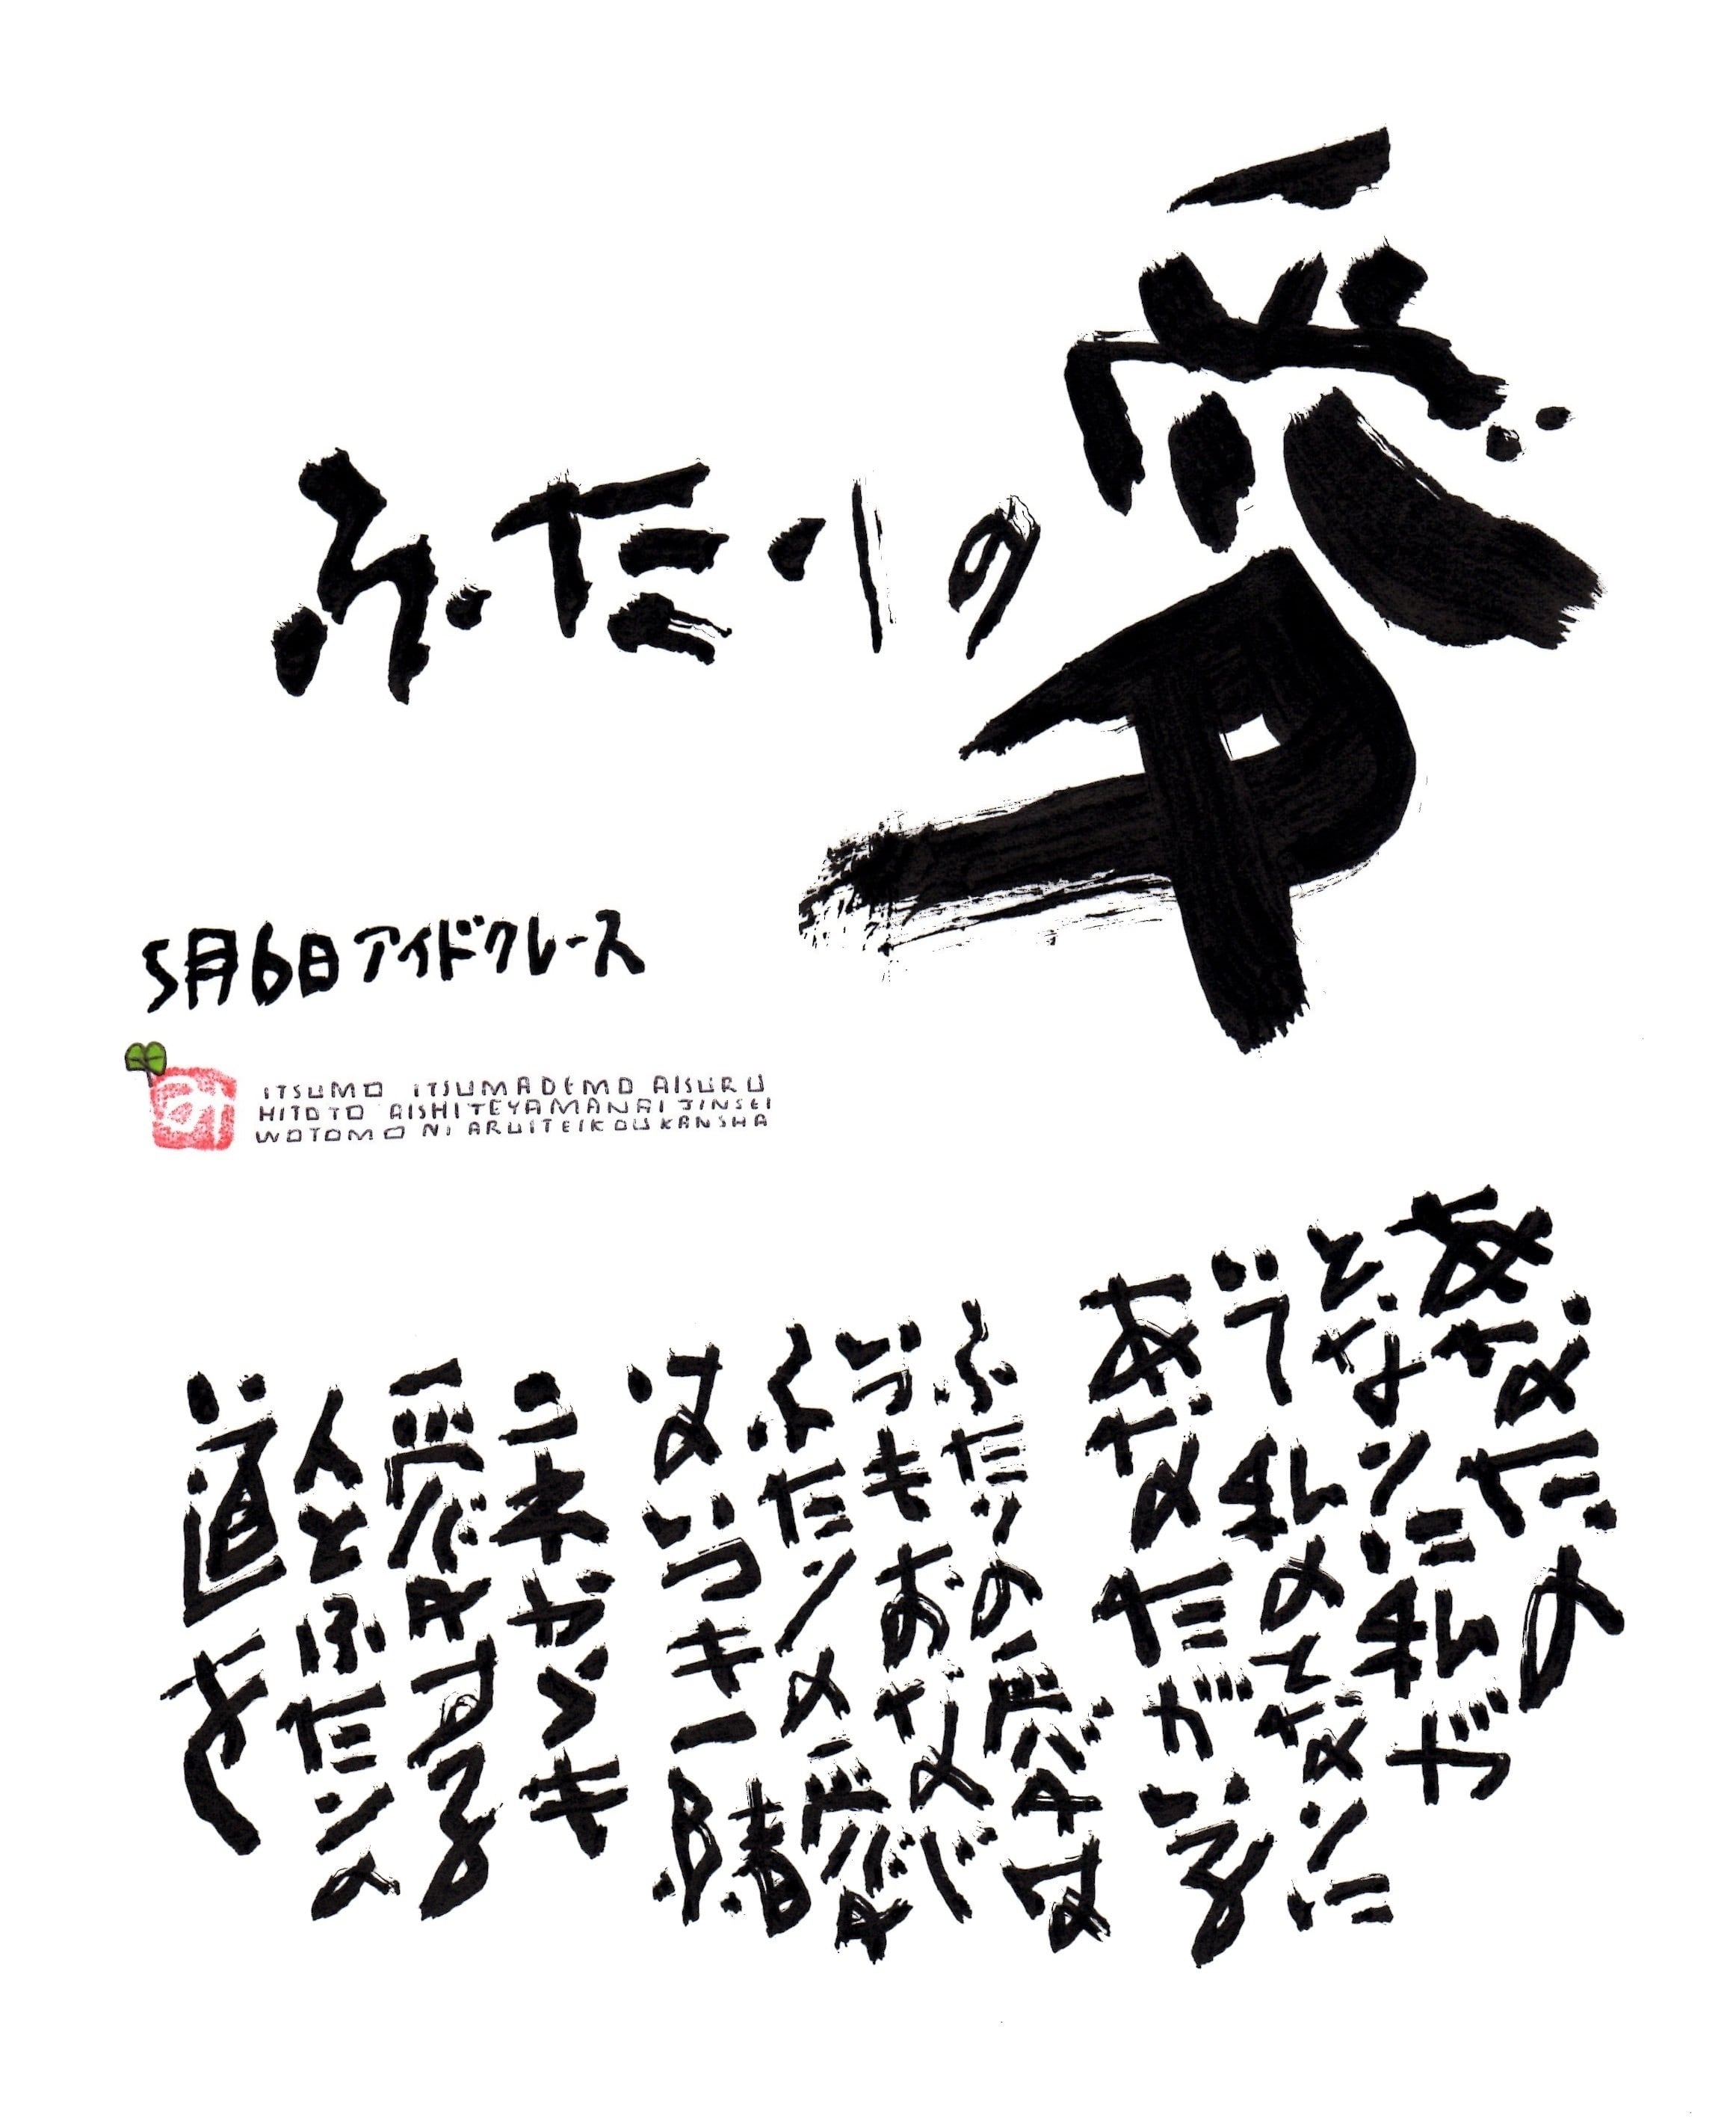 ふたりの愛
5月6日アイドクレース
ITSUMO ITSUMADEMO AISURU
HITOTO AISHITEYAMANAI JINSEI
WOTOMO NI ARUITEIKOU KANSHA
あなたの
となりに私が
いて私のとなりに
あなたがいる
ふたりの愛は
いつもおなじ
ふたりの愛
はいつも一緒
これからも
愛する
人とふたりの
道を